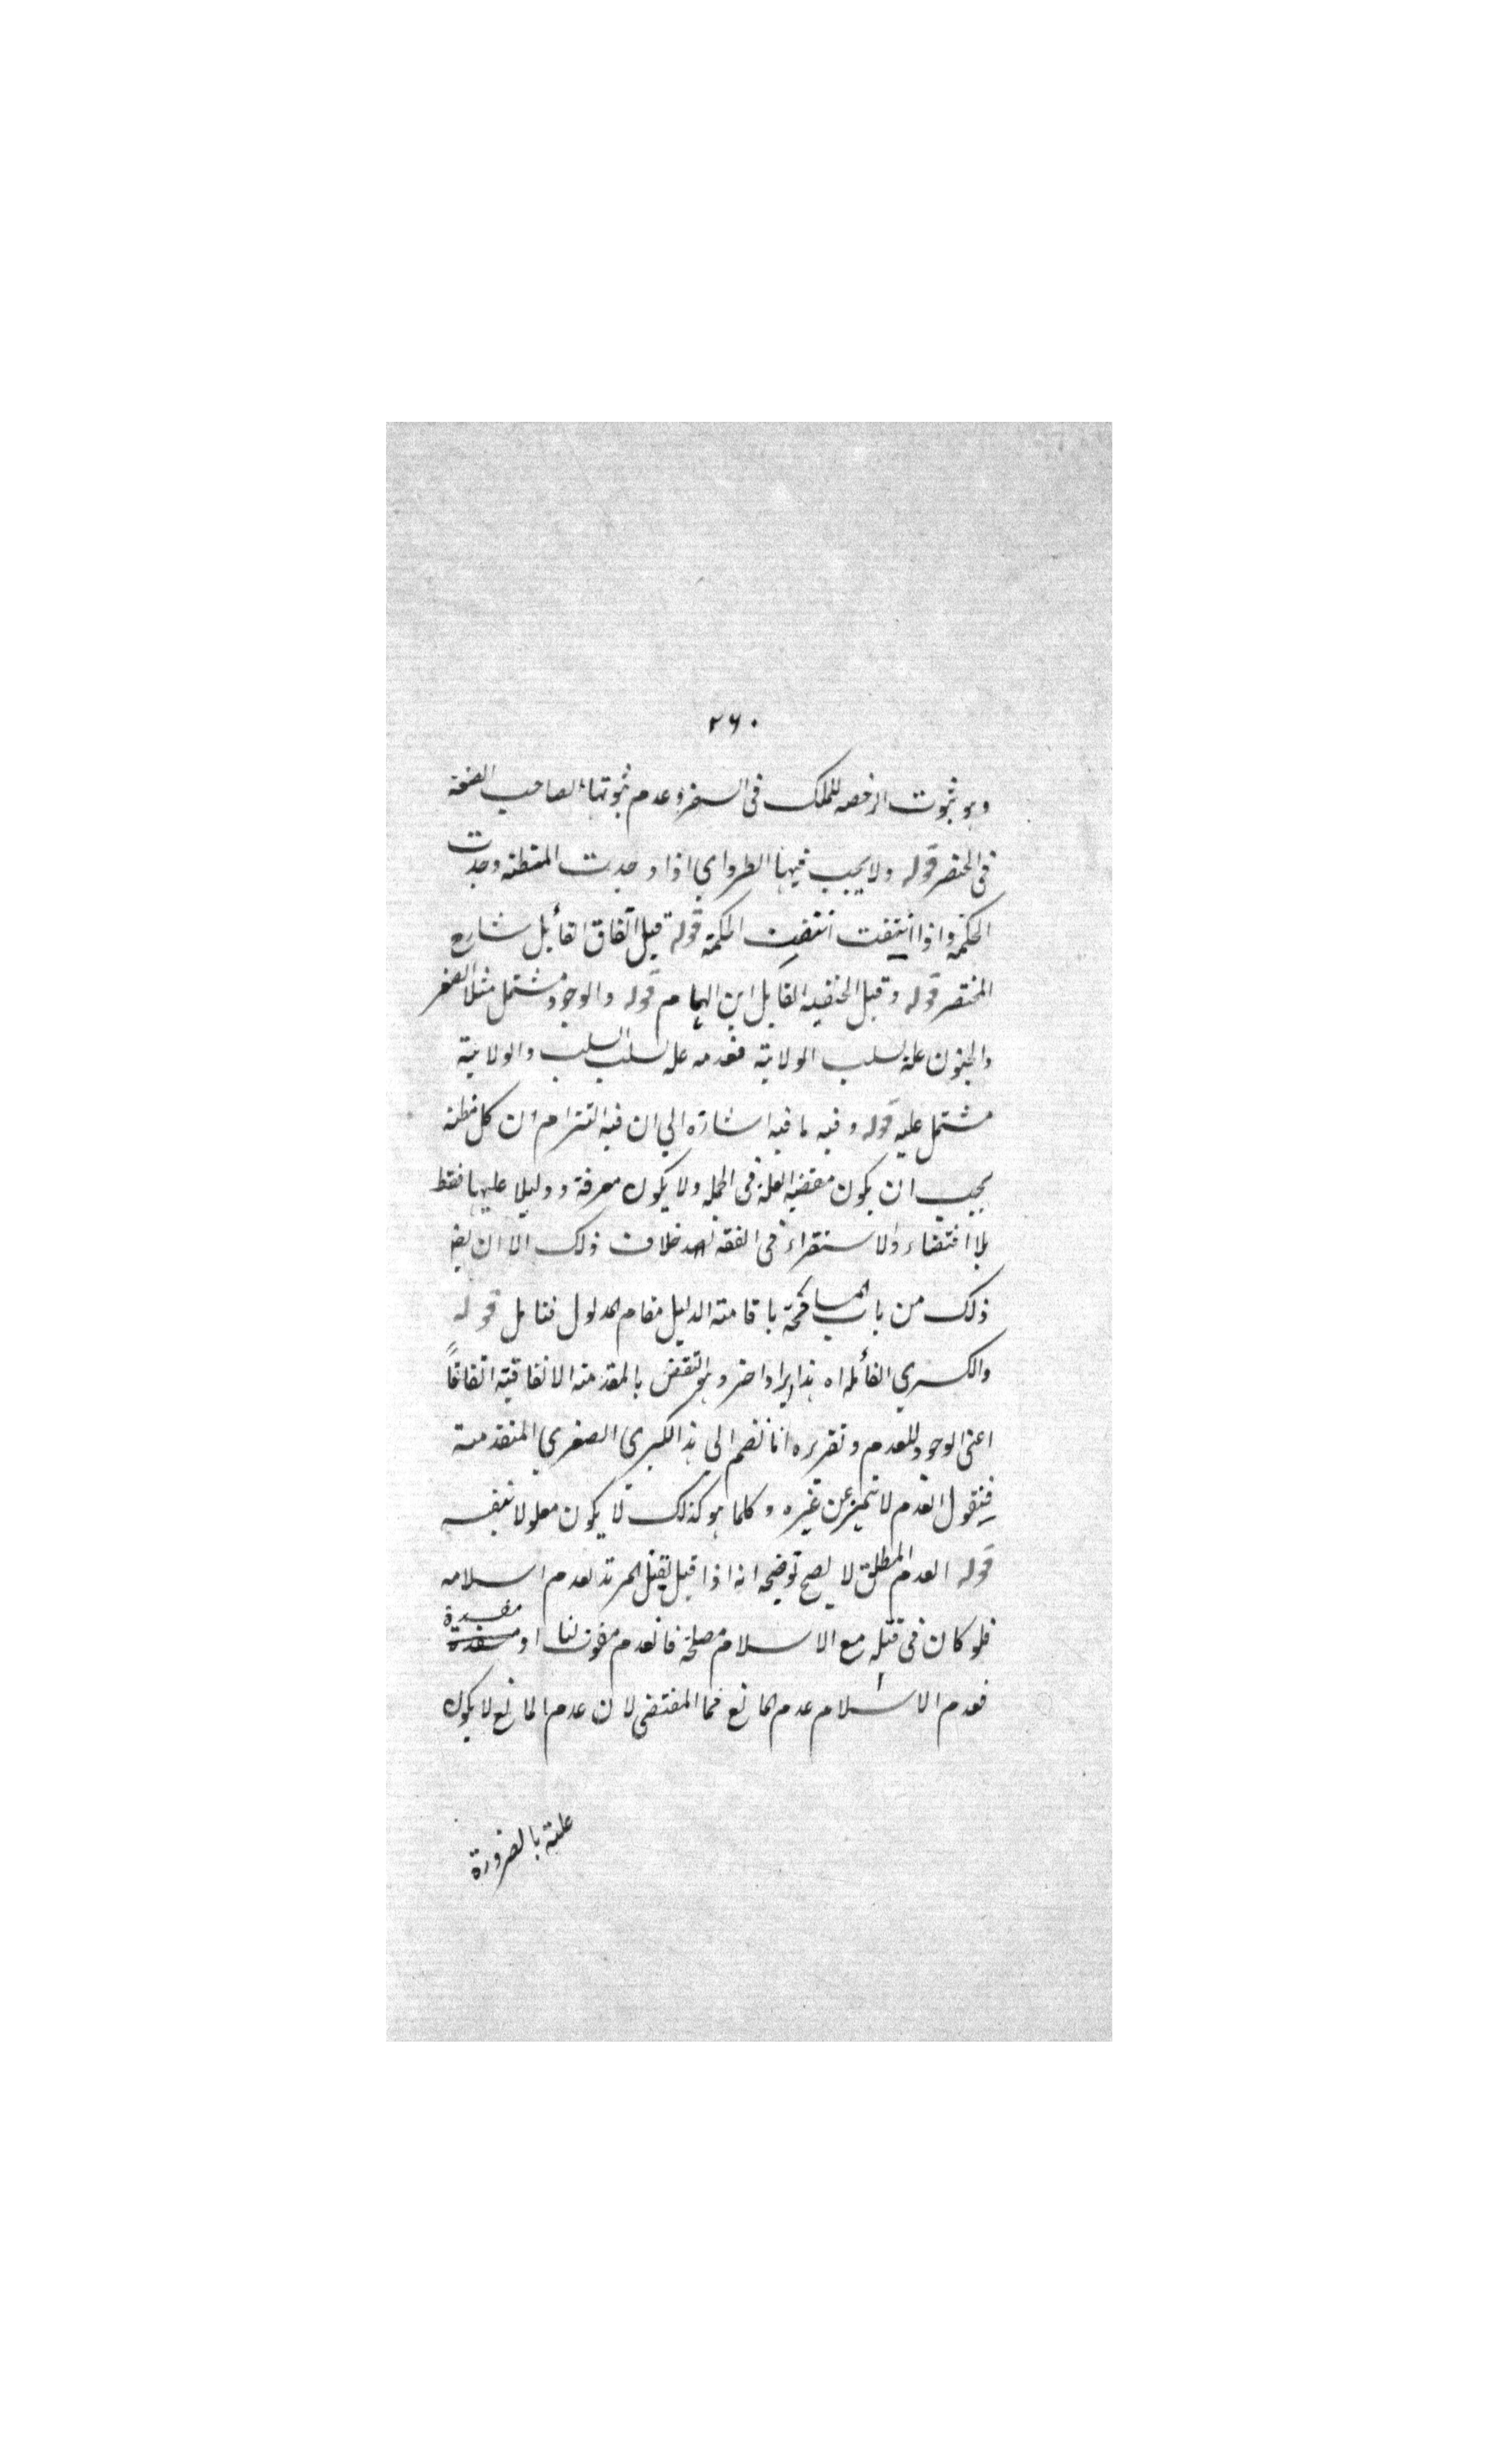 ٢٦٠
وهو ثبوت الرخصه للملك فى السفر وعدم ثبوتها لصاحب الصنعة
فى الحضر قوله ولا يجب فيها الطرد اي اذا وجدت المظنه وجدت
الحكمه واذا انتفت انتفت الحكمة قوله قيل اتفاق القائل شارح
المختصر قوله وقيل الحنفيه القايل ابن الهمام قوله والوجود مشتمل مثلا الصغر
والجنون علة لسلب الولاية فعدمه علة لسلب السلب والولاية
مشتمل عليه قوله وفيه ما فيه اشارة الي ان فيه التزام ان كل مظنه
يجب ان يكون مقتضيه العلة فى الجمله ولا يكون معرفة ودليلا عليها فقط
بلا اقتضاء والاستقراء فى الفقه خلاف ذلك الا ان
ذلك من باب المسامحة باقامته الدليل مقام المدلول فتامل قوله
والكبري القائله اه هذا ايراد اخر وهو النقض بالمقدمته الاتفاقية اتفاقاً
اعنى الوجود للعدم وتقريره انا نضم الي هذا الكبرى الصغري المتقدمته
فنقول العدم لا تميز عن غيره وكلما هو كذلك لا يكون معلولا بنفسه
قوله العدم المطلق لا يصح توضيحه انه اذا قيل يقتل المرتد لعدم اسلامه
فلو كان فى قتله مع الاسلام مصلحة فالعدم مفوت لنا او مفسدة
فعدم الاسلام عدم المانع فما المقتضى لان عدم المانع لا يكون
علته بالضرورة